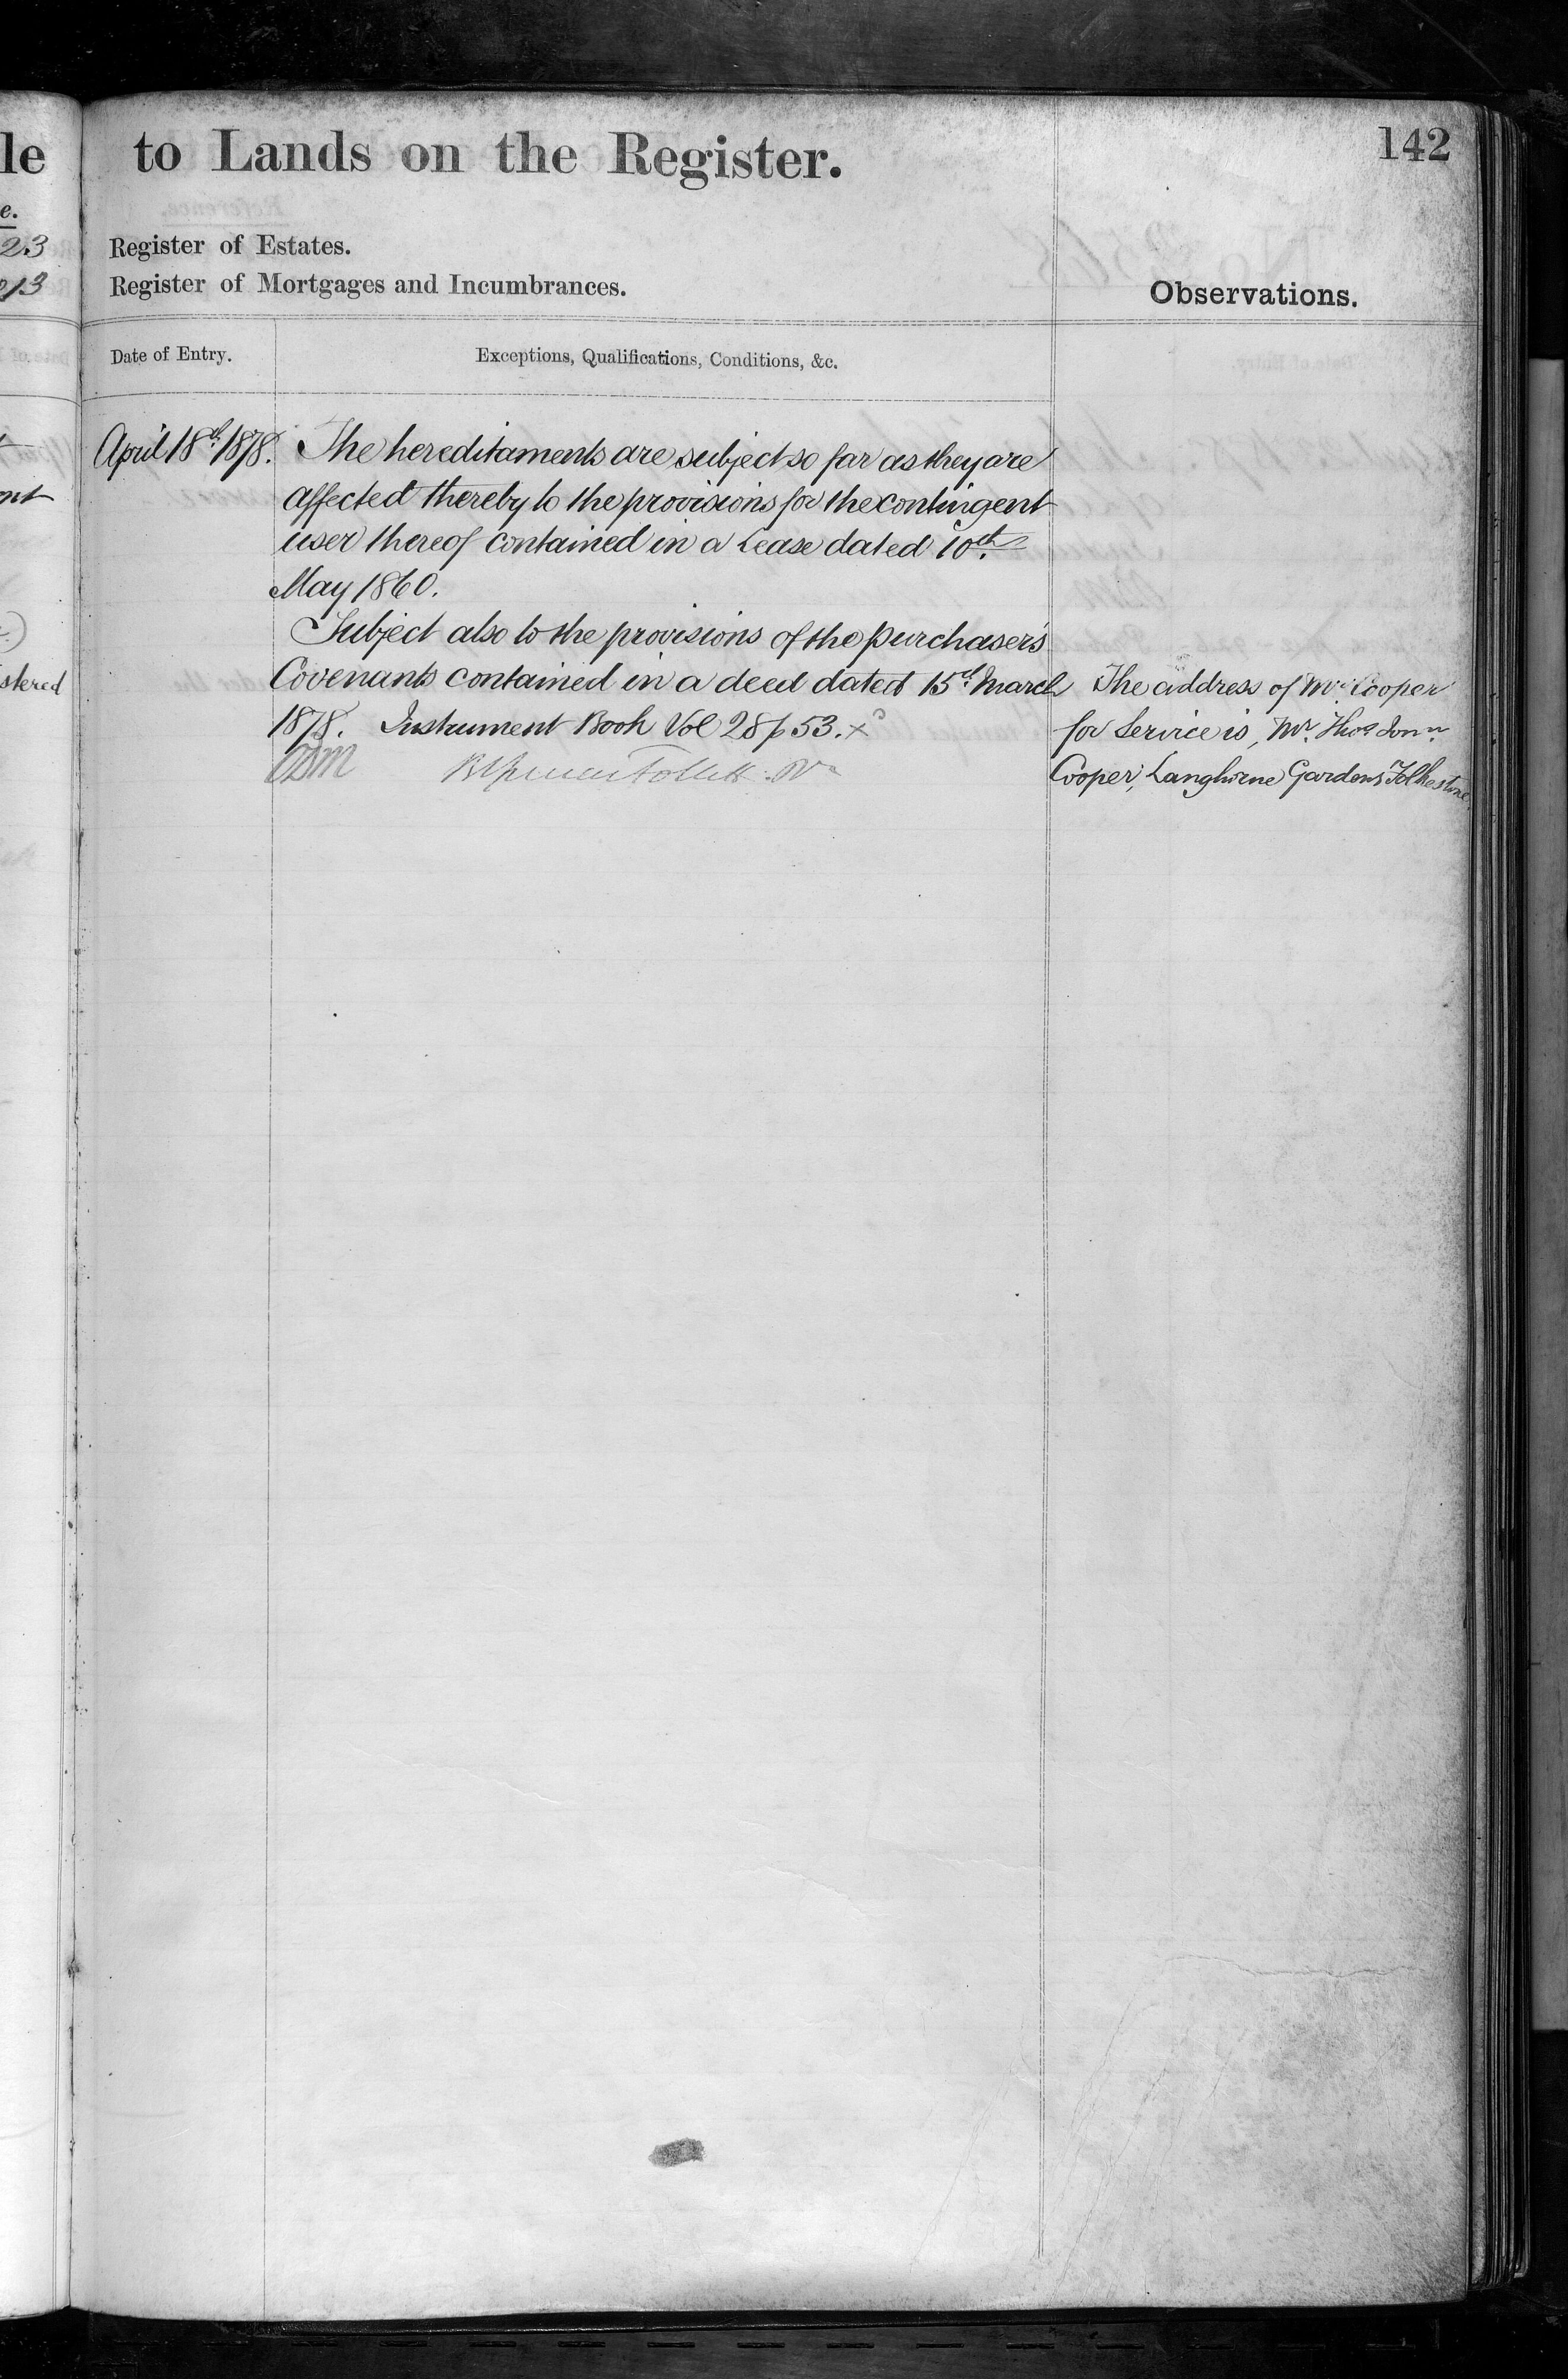 le
to Lands on the Register.
142
e.
23
Register of Estates.
13
Register of Mortgages and Incumbrances.
Observations.
Date of Entry.
Exceptions, Qualifications, Conditions, &c.
April 18th 1878.
The hereditaments are subject so far as they are
affected thereby to the provisions for the contingent
user thereof contained in a Lease dated 10th
May 1860.
Subject also to the provisions of the purchaser's
Covenants contained in a deed dated 15th March
1878. Instrument Book Vol 28 p 53. x
stered
The address of Mr. Cooper
for Service is, Mr. Thos Jonn
Cooper, Langhorne Gardens Folkestone.